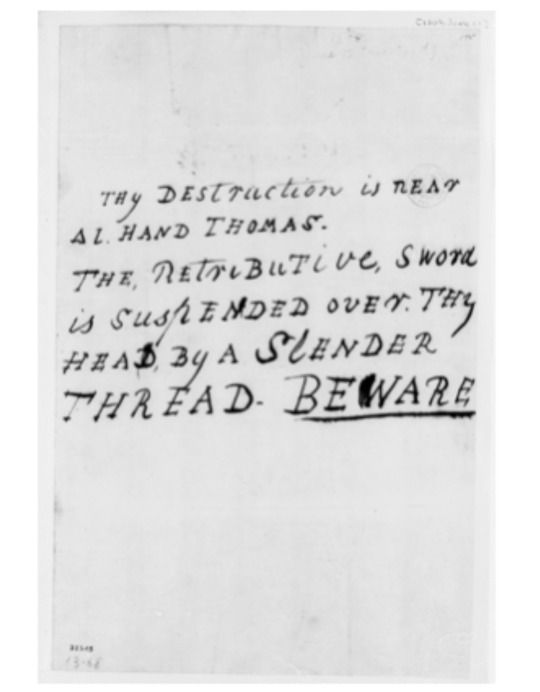 THy DEStraction is nEAr
Al. HAND THOMAS.
THE, REtriBuTive, Sword
is SuspENDED over. THy
HEAD, By A SlENDER
THREAD- BEWARE